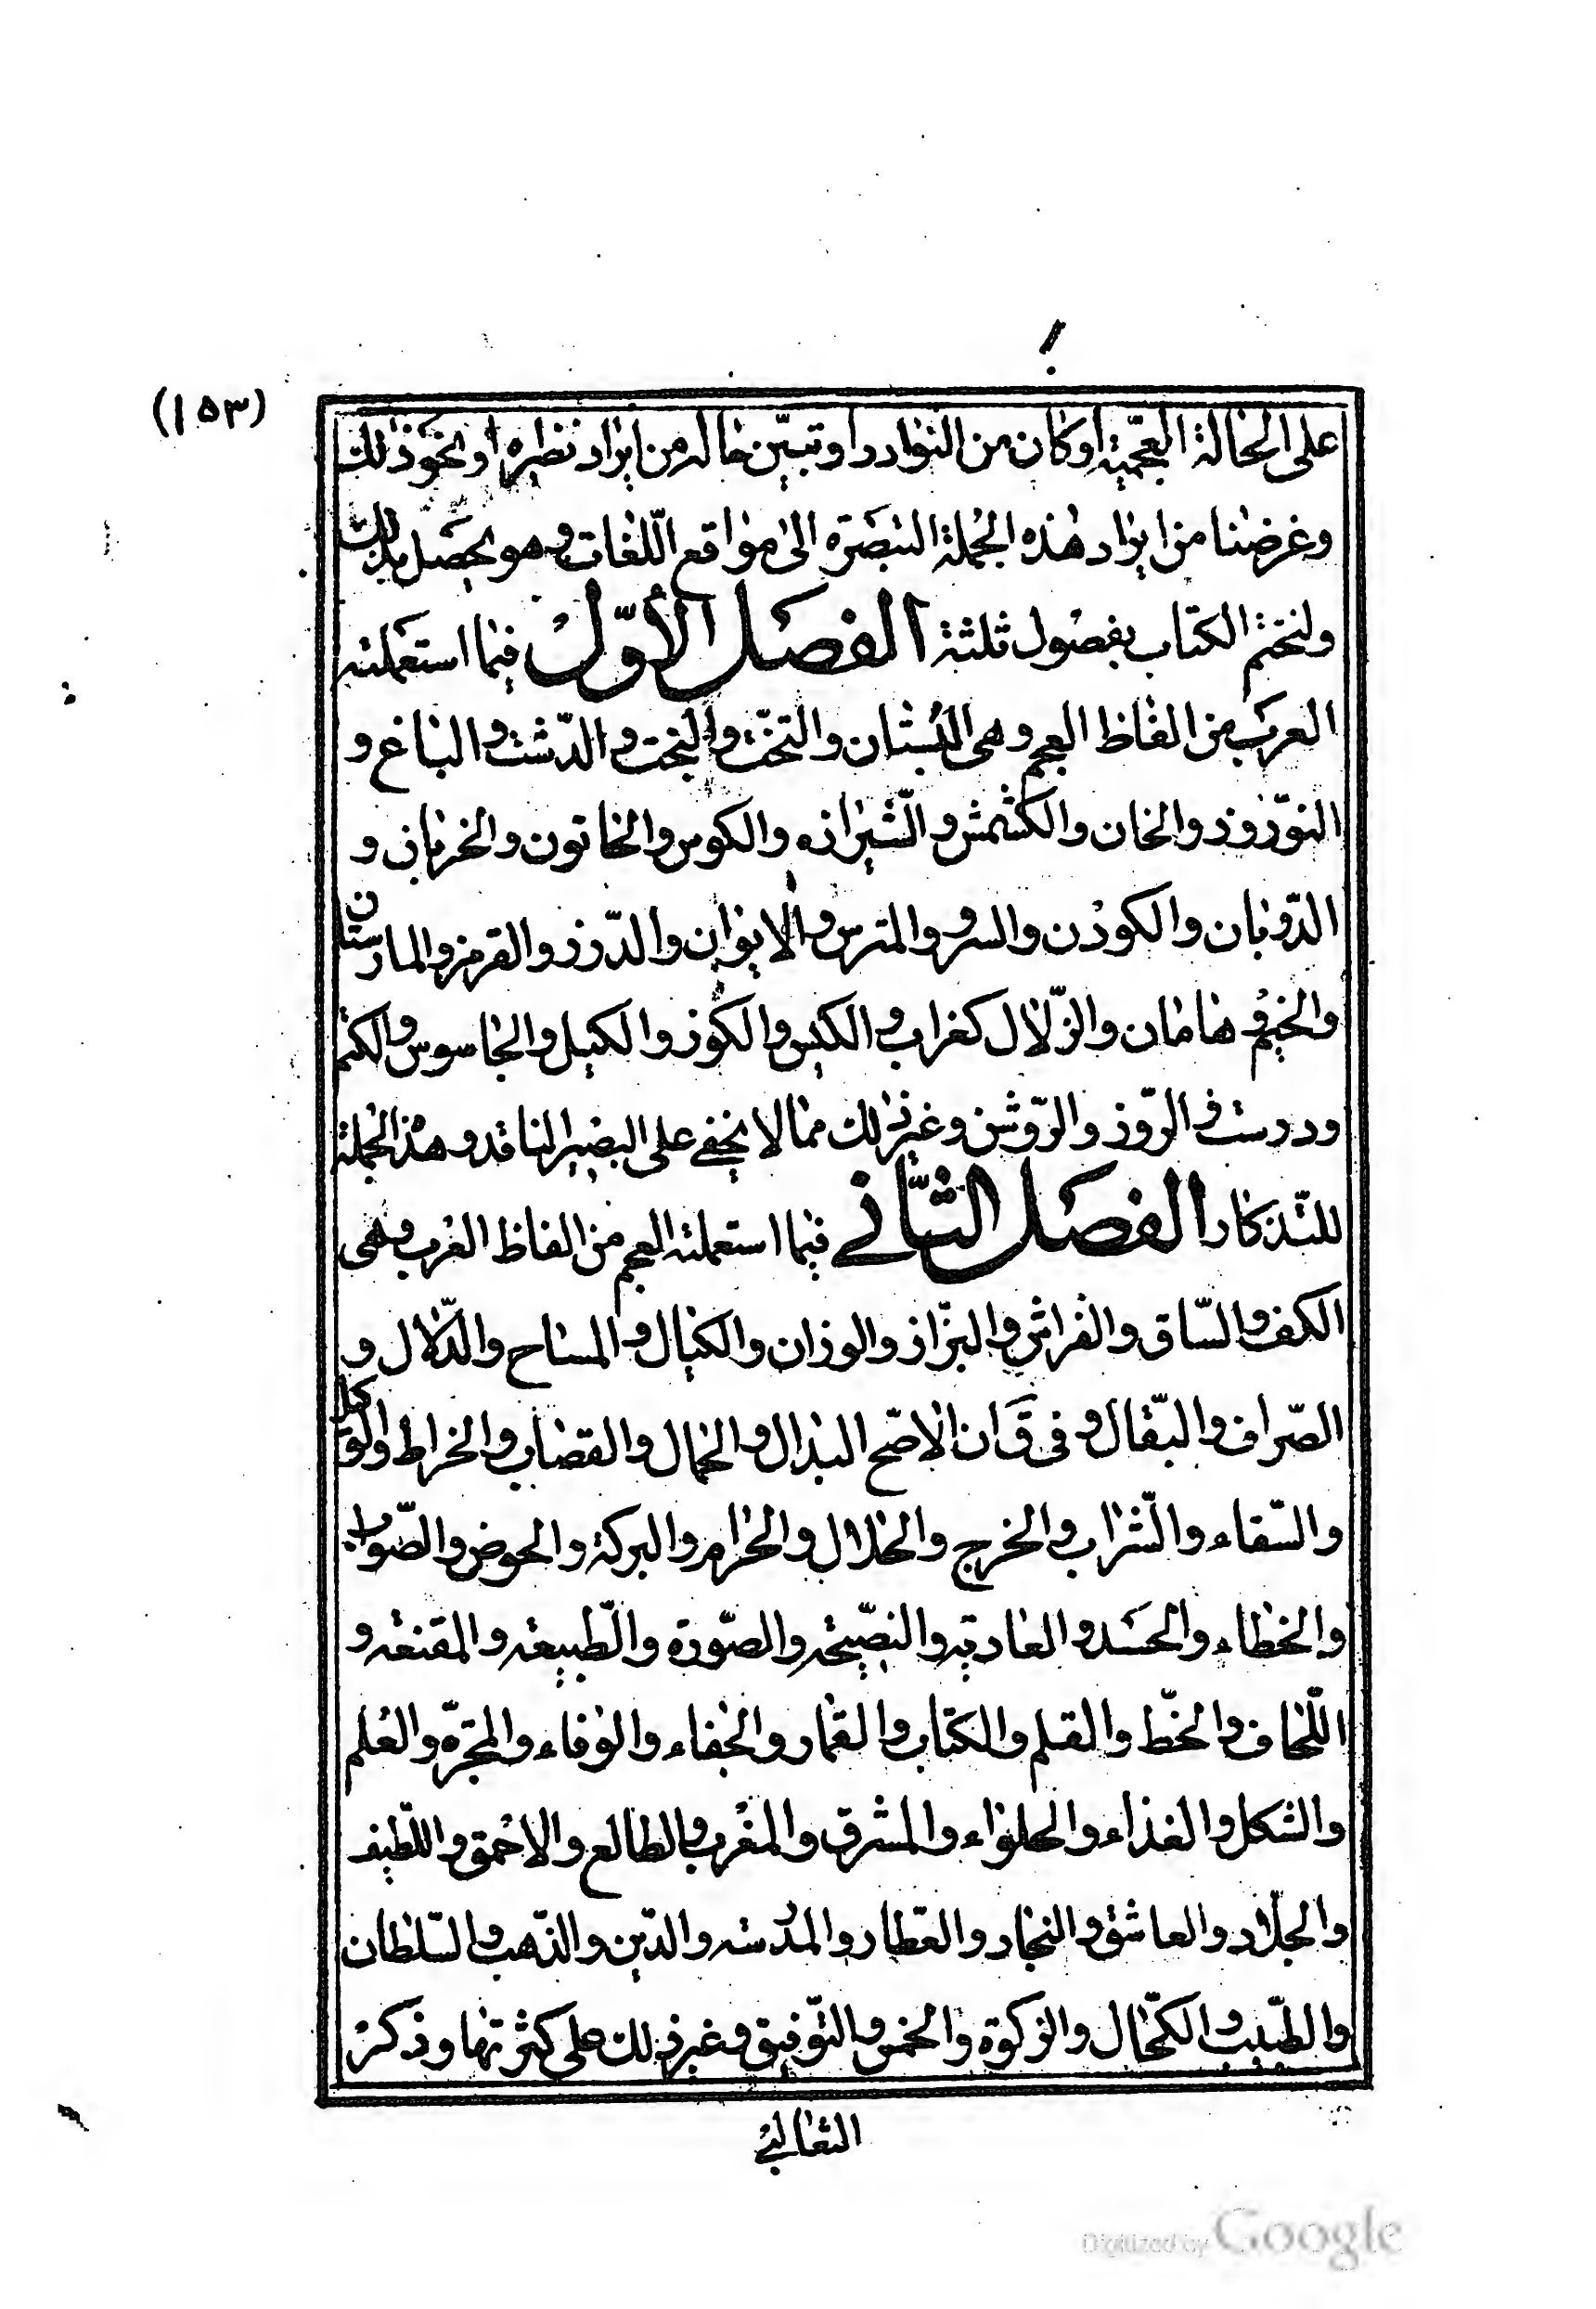 (١٥٣)
على الحالة العجمية او كان من النوادر او تبيّن حاله من ايراد نظيره او نحو ذلك
وغرضنا من ايراد هذه الجملة التبصرة الى مواقع اللّغات وهو يحصل بذلك
ولنختم الكتاب بفصول ثلثة الفصل الأوّل فيما استعملته
العرب من الفاظ العجم وهى البستان والتخت والبخت والدّشت والباغ و
النوّروز والخان والكشمش والشّيرازه والكوس والخاتون والخربان و
الدّوبان والكودن والسرو والمترس والايوان والدّرز والقرمز والمارستان
والخيم وهامان والزّلال كغراب والكيس والكوز والكيل والجاسوس والكتم
ودرست والرّوز والرّوشن وغير ذلك ممّا لا يخفى على البصير الناقد وهذه الجملة
للتّذكار الفصل الثّانى فيما استعملته العجم من الفاظ العرب وهى
الكف والسّاق والفراش والبزّاز والوزان والكيال والمساح والدّلال و
الصّراف والبّقال وفى ق ان الاصّح البدال والحمال والقصاب والخراط والوكيل
والسّقاء والشّراب والخرج والحلال والحرام والبركة والحوض والصّواب
والخطاء والحسد والعادية والنصّيحه والصّورة والطّبيعه والمقنعه و
اللّحاف والخّط والقلم والكتاب والقمار والجفاء والوفاء والمجرّة والعلم
والشكل والغذاء والحلواء والمشرق والمغرب والطالع والاحمق واللّطيف
والجلّاد والعاشق والنجار والعطّار والمدرسه والدّين والذّهب والسّلطان
والطّبيب والكحّال والزكوة والخمس والتّوفيق وغير ذلك على كثرتها وذكر
الثعالبى
Digitized by Google